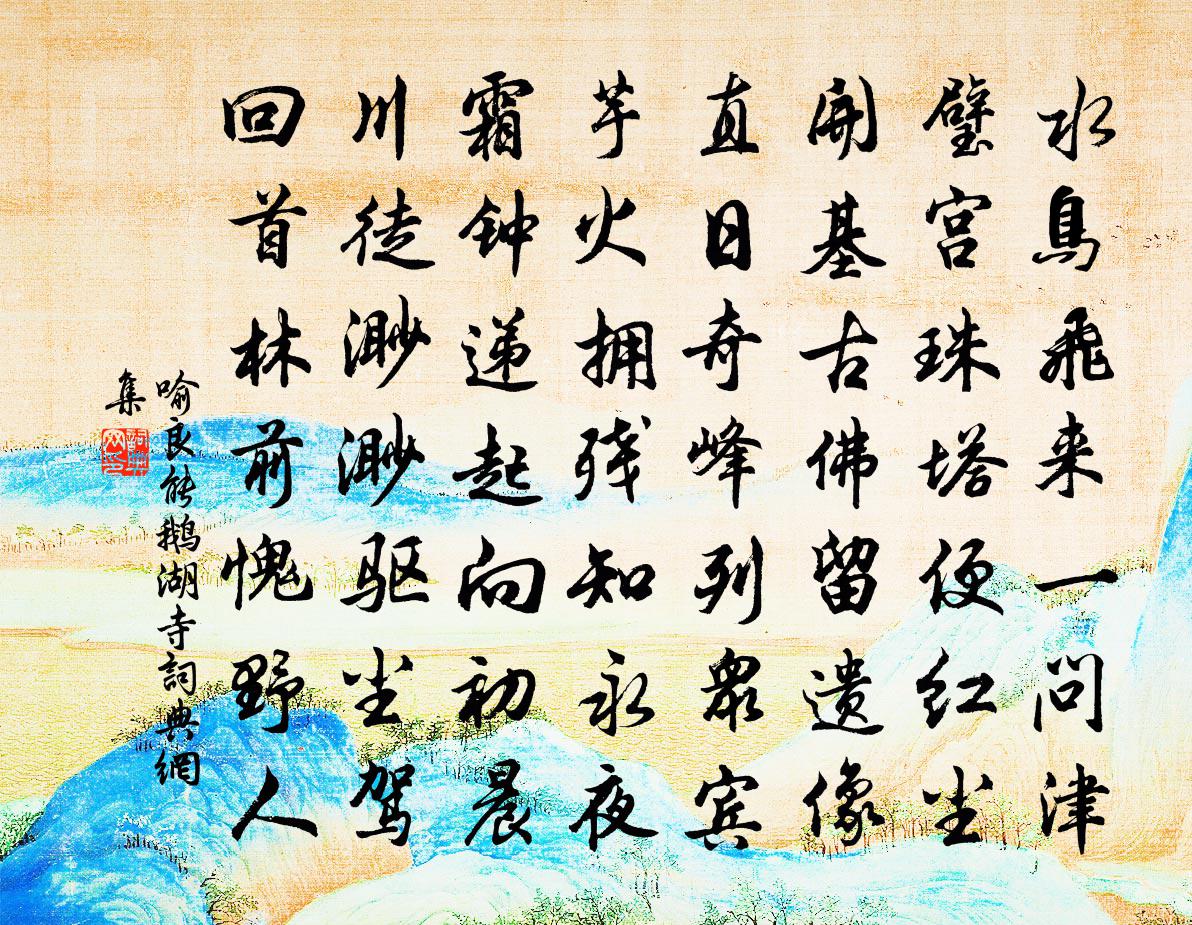 水鳥飛来一问津
璧宫珠塔便红尘
開基古佛留遗像
直日奇峰列眾宾
芋火拥残知永夜
霜钟递起向初晨
川徒渺渺驱尘驾
回首林前愧野人
喻良能鹅湖寺詞典網
集